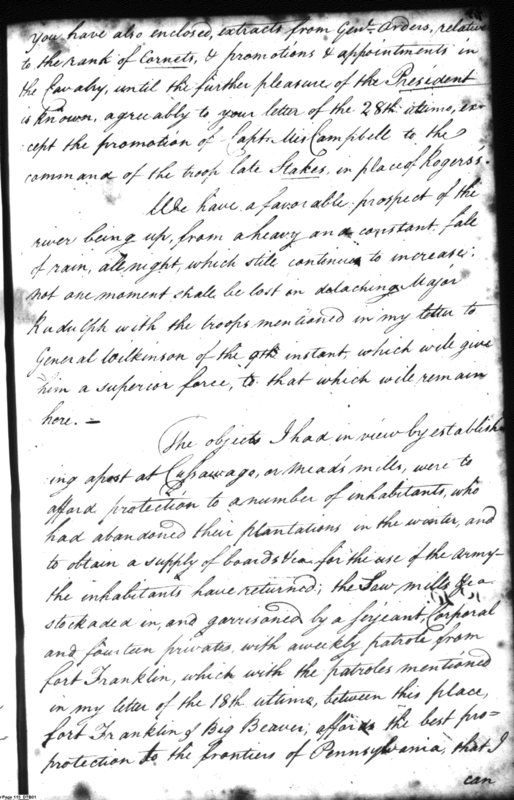 you have also enclosed, extracts from Genl. Orders, relative
to the rank of Cornets, & promotions & appointments in
the Cavalry, until the further pleasure of the President
is known, agreeably to your letter of the 28th ultimo, ex-
cept the promotion of Capt. Mis Campbell to the
command of the troop late Stakes, in place of Rogers's.
We have a favorable prospect of the
river being up, from a heavy and constant fall
of rain, all night, which still continues to increase;
not one moment shall be lost in detaching Major
Rudulph with the troops mentioned in my letter to
General Wilkinson of the 9th instant, which will give
him a superior force, to that which will remain
here. —
The objects I had in view by establish
ing a post at Cussawago, or Mead's mills, were to
afford protection to a number of inhabitants, who
had abandoned their plantations in the winter, and
to obtain a supply of boards &ca for the use of the Army-
the inhabitants have returned; the Saw mills &ca
stockaded in, and garrisoned by a serjeant, Corporal
and fourteen privates, with a weekly patrole from
fort Franklin, which with the patroles mentioned
in my letter of the 18th ultimo, between this place,
fort Franklin & Big Beaver, affords the best pro-
protection to the frontiers of Pennsylvania, that I
can